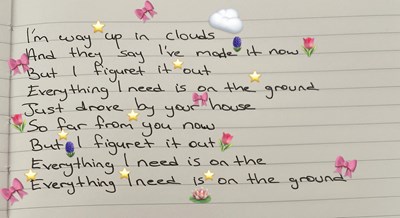 I'm way up in clouds
And they say I've made it now
But I figuret it out
Everything I need is on the ground
Just drove by your house
So far from you now
But I figuret it out
Everything I need is on the
Everything I need is on the ground